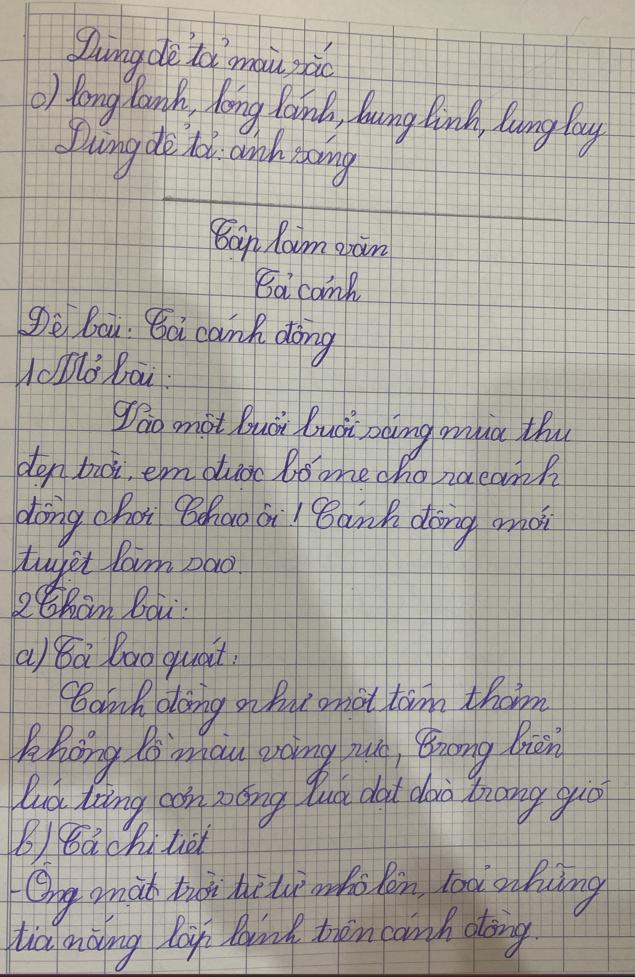 Dùng để tả màu sắc
c) long lanh, lóng lánh, lung linh, lung lay
Dùng để tả: ánh sáng
Tập làm văn
Tả cảnh
Đề bài: Tả cánh đồng
1. Mở bài:
Vào một buổi buổi sáng mùa thu
đẹp trời, em được bố mẹ cho ra cánh
đồng chơi. Chao ôi! Cánh đồng mới
tuyệt làm sao.
2 Thân bài:
a) Tả bao quát:
Cánh đồng như một tấm thảm
khổng lồ màu vàng rực, Trong biển
lúa từng cơn sóng lúa dạt dào trong gió
b) Tả chi tiết
- Ông mặt trời từ từ nhô lên, toả những
tia nắng lấp lánh trên cánh đồng.